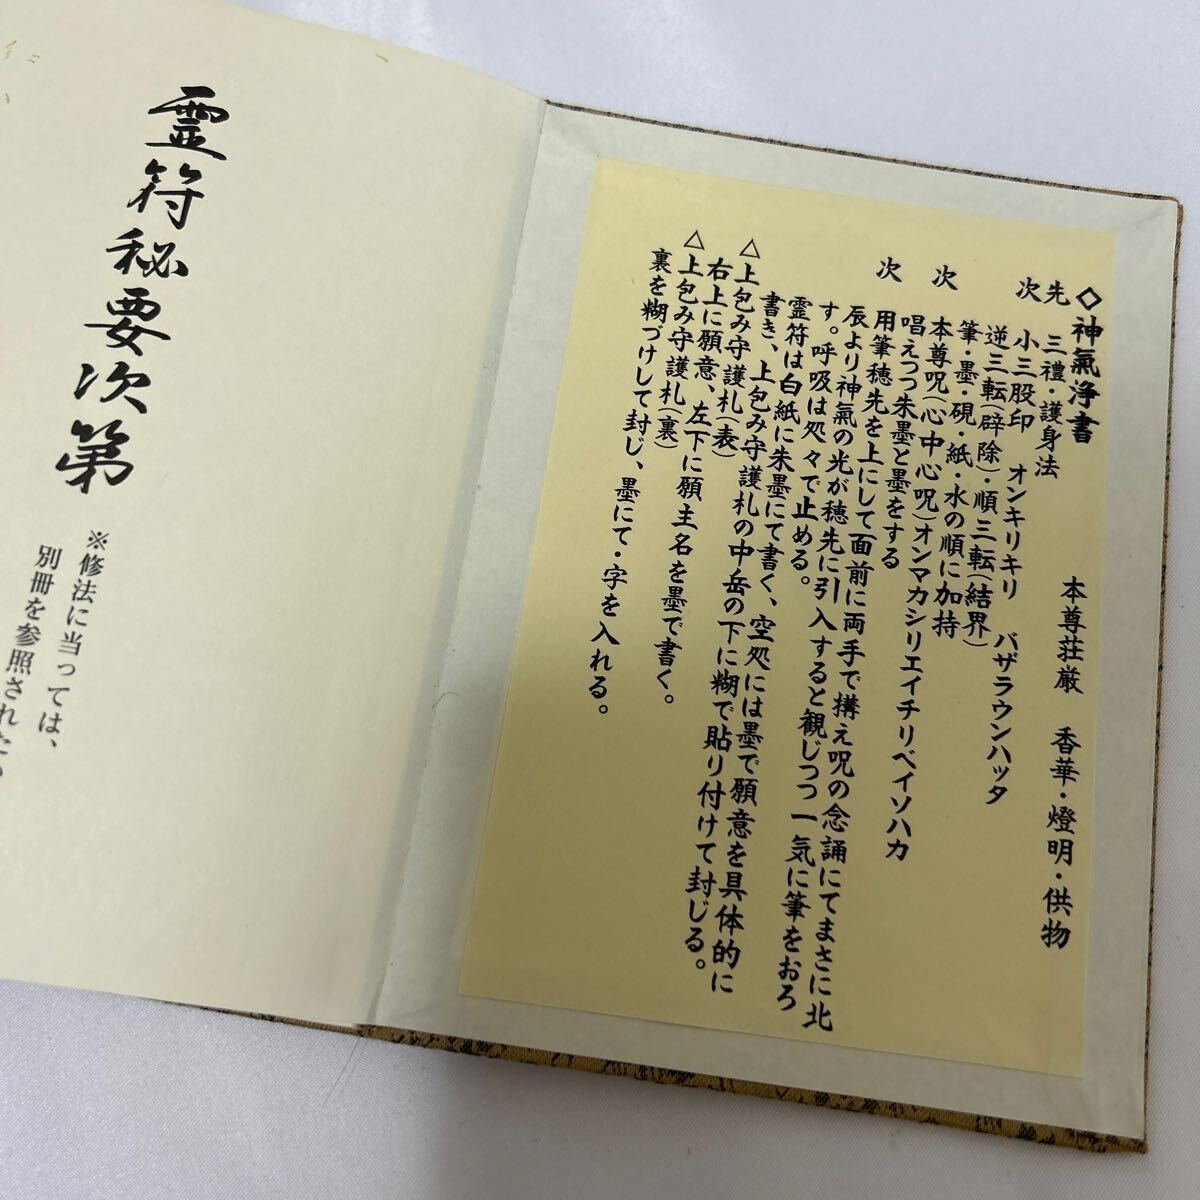 ◇神氣浄書　本尊荘厳　香華・燈明・供物
先　三禮・護身法
次　小三股印　オンキリキリ　バザラウンハッタ
逆三転(辟除)・順三転(結界)
筆・墨・硯・紙・水の順に加持
次　本尊呪(心中心呪)オンマカシリエイチリベイソハカ
唱えつつ朱墨と墨をする
次　用筆穂先を上にして面前に両手で構え呪の念誦にてまさに北
辰より神氣の光が穂先に引入すると観じつつ一気に筆をおろ
す。呼吸は処々で止める。
霊符は白紙に朱墨にて書く、空処には墨で願意を具体的に
書き、上包み守護札の中岳の下に糊で貼り付けて封じる。
△上包み守護札(表)
右上に願意、左下に願主名を墨で書く。
△上包み守護札(裏)
裏を糊づけして封じ、墨にて・字を入れる。
霊符秘要次第
※修法に当っては、
別冊を参照された